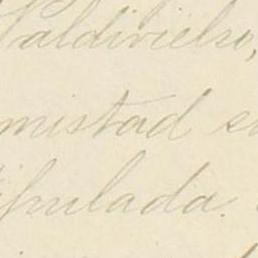 Valdivielso,
mistad su
tipulada.